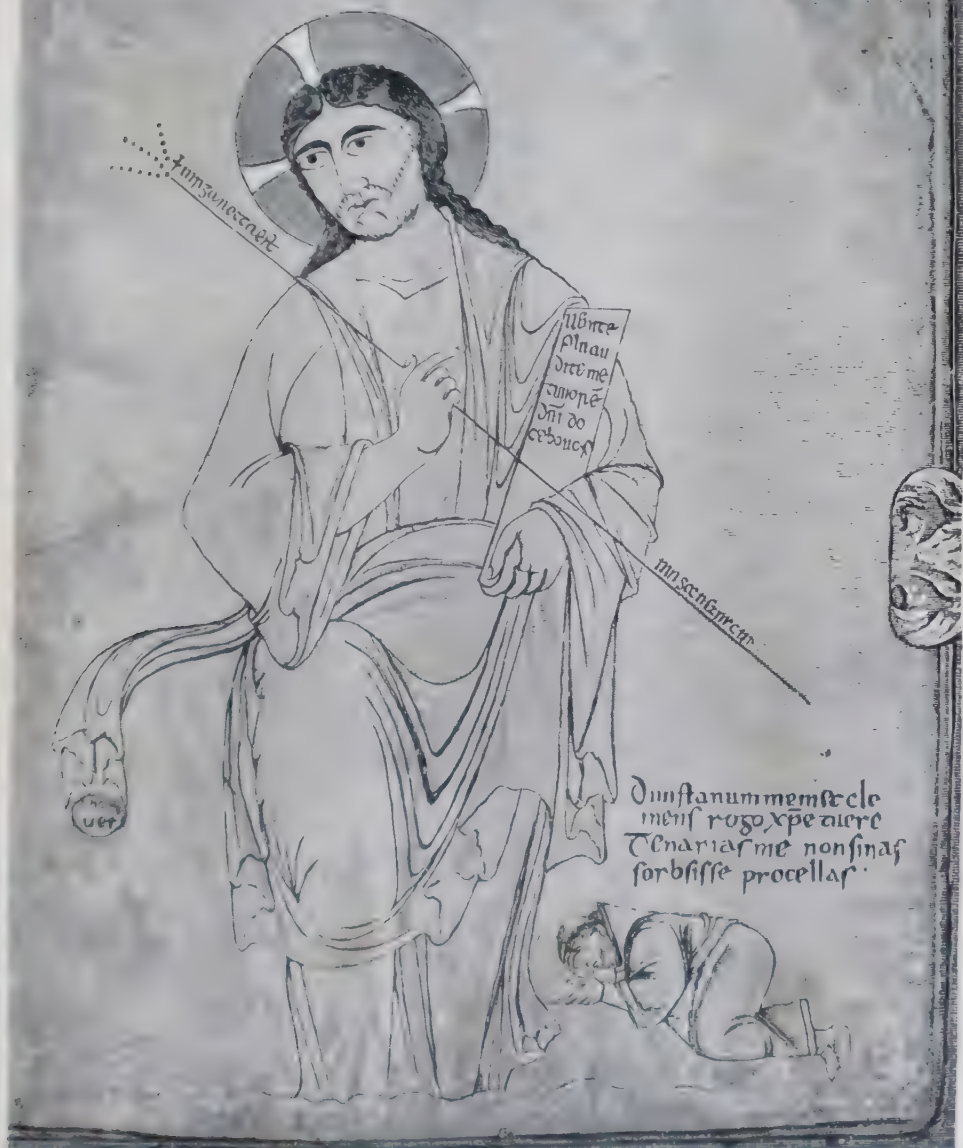 uirga recta est
Uenite
filii au
dite me
timorē
dn̄i do
cebo uos
Dunstanum memet cle
mens rogo xp̄e tuere
Tenarias me non sinas
sorbsisse procellas